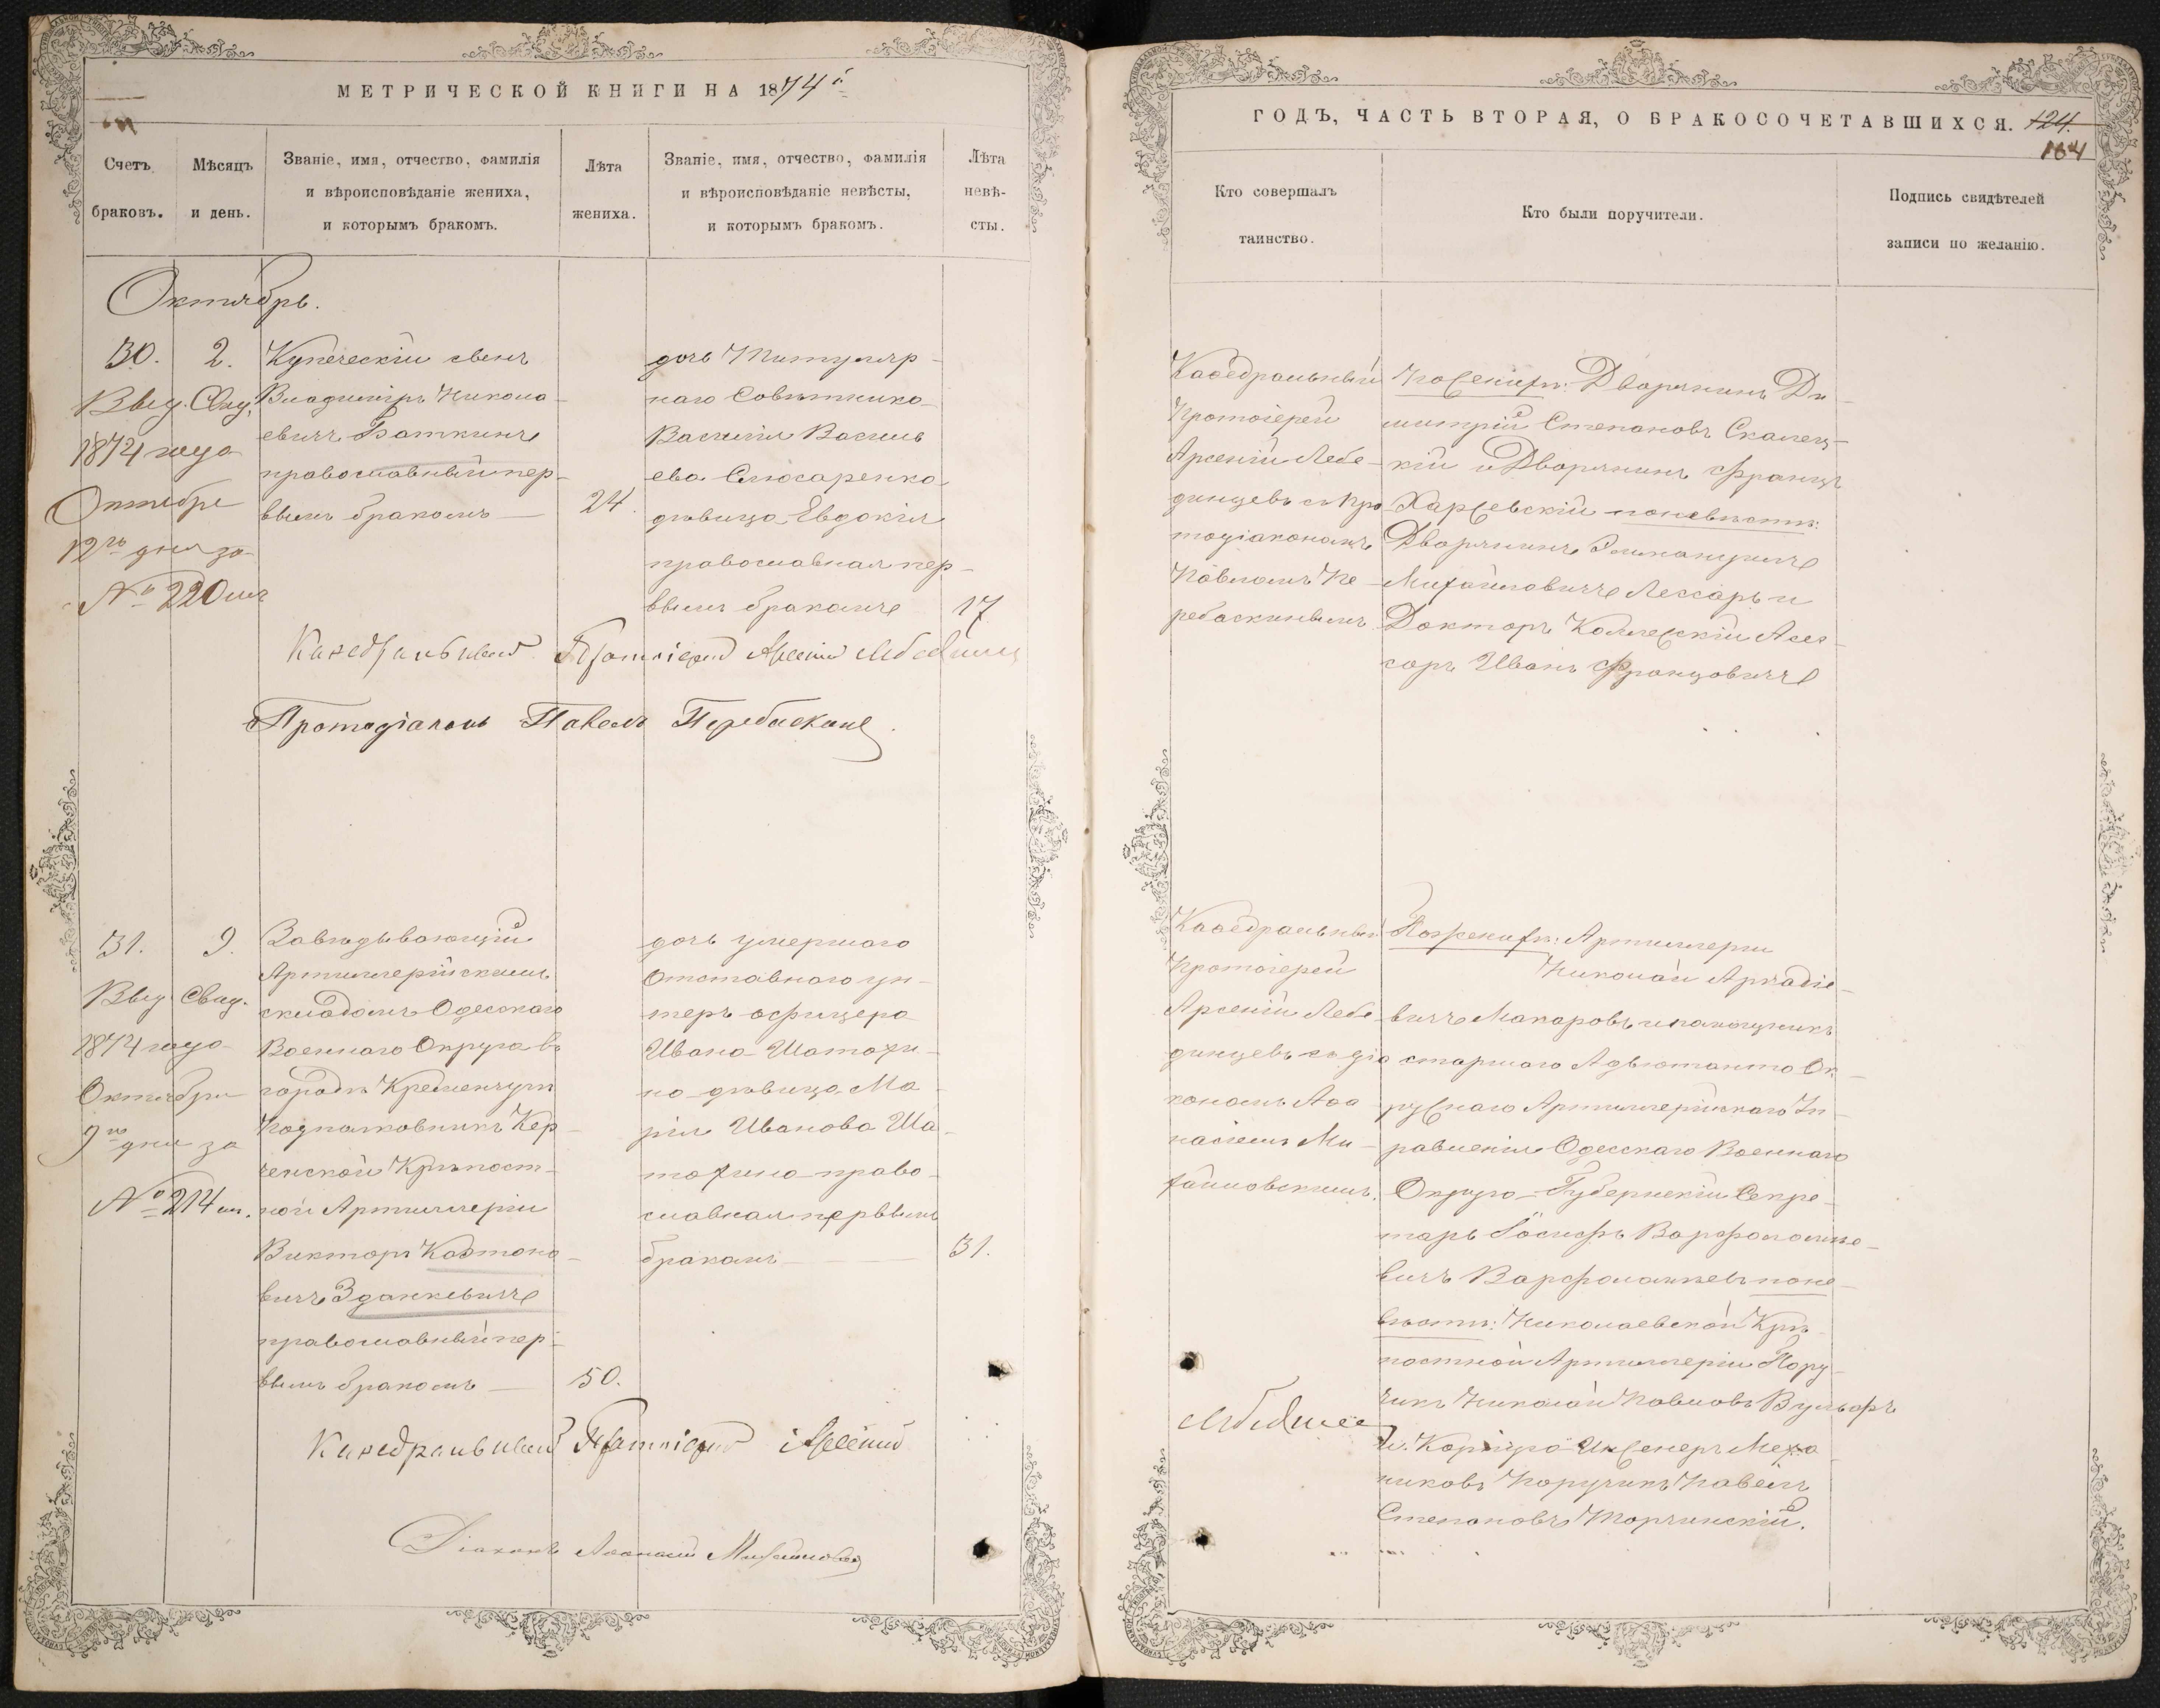 МЕТРИЧЕСКОЙ КНИГИ НА 1874й
Счетъ браковъ.
Мѣсяцъ и день.
Званіе, имя, отчество, фамилія
и вѣроисповѣданіе жениха,
и которымъ бракомъ.
Лѣта
жениха.
Званіе, имя, отчество, фамилія
и вѣроисповѣданіе невѣсты,
и которымъ бракомъ.
Лѣта
невѣ-
сты.
Октябрь.
30.
Выд. Свид.
1874 года
Октября
12го дня за
№ 220
2.
Купеческій сынъ
Владиміръ Никола-
евичъ Баткинъ
православный пер-
вымъ бракомъ
24.
дочь Титуляр-
наго Совѣтника
Василія Василь
ева Слюсаренко
дѣвица Евдокія
православная пер-
вымъ бракомъ
17
Каѳедральный Протоіерей Арсеній Лебединцевъ
Протодіаконъ Павелъ Перебаскинъ.
31.
Выд. Свид.
1874 года
Октября
9го дня за
№ 214
9.
Завѣдывающій
Артиллерійскимъ
складомъ Одесскаго
Военнаго Округа въ
городѣ Кременчугѣ
Подполковникъ Кер-
ченской Крѣпост-
ной Артиллеріи
Викторъ
вичъ Зданкевичъ
православный пер-
вымъ бракомъ
50.
дочь умершаго
Отставного ун-
теръ офицера
Ивана Шатохи-
на дѣвица Ма-
рія Иванова Ша-
тохина право-
славная первымъ
бракомъ
31.
Каѳедральный Протоіерей Арсеній
Діаконъ Аѳанасій Михайловскій
ГОДЪ, ЧАСТЬ ВТОРАЯ, О БРАКОСОЧЕТАВШИХСЯ. 124.
184
Кто совершалъ
таинство.
Кто были поручители.
Подпись свидѣтелей
записи по желанію.
Каѳедральный
Протоіерей
Арсеній Лебе-
динцевъ съ Про
тодіакономъ
Павломъ Пе-
ребаскинымъ
По женихѣ: Дворянинъ Ди-
митрій Степановъ Скалец-
кій и Дворянинъ Францъ
Харжевскій по невѣстѣ:
Дворянинъ
Михайловичъ Лессаръ и
Докторъ Коллежскій Асес-
соръ Иванъ Францовичъ
Каѳедральный
Протоіерей
Арсеній Лебе-
динцевъ съ діа
кономъ Аѳа-
насіемъ Ми-
хайловскимъ.
По женихѣ: Артиллеріи
Николай Аркадіе-
вичъ Макаровъ и помощникъ
старшаго Адъютанта Ок-
ружнаго Артиллерійскаго Уп-
равленія Одесскаго Военнаго
Округа Губернскій Секре-
тарь Іосифъ Варфоломѣе-
вичъ Варфоломѣевъ по не-
вѣстѣ: Николаевской Крѣ-
постной Артиллеріи Пору-
чикъ Николай Павловъ Вульфъ
и Корпуса Инженеръ Меха-
никовъ Поручикъ Павелъ
Степановъ Торчинскій.
Лебединцевъ